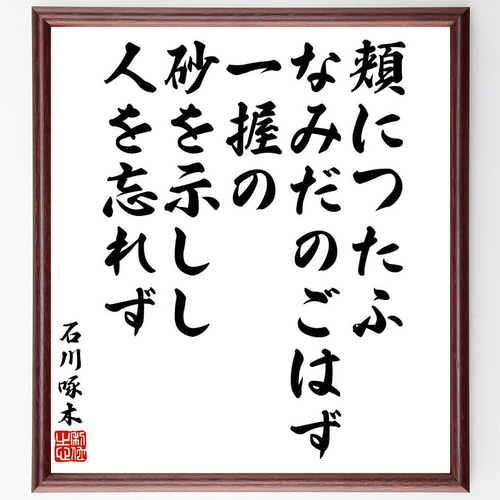 頬につたふ
なみだのごはず
一握の
砂を示しし
人を忘れず
石川啄木